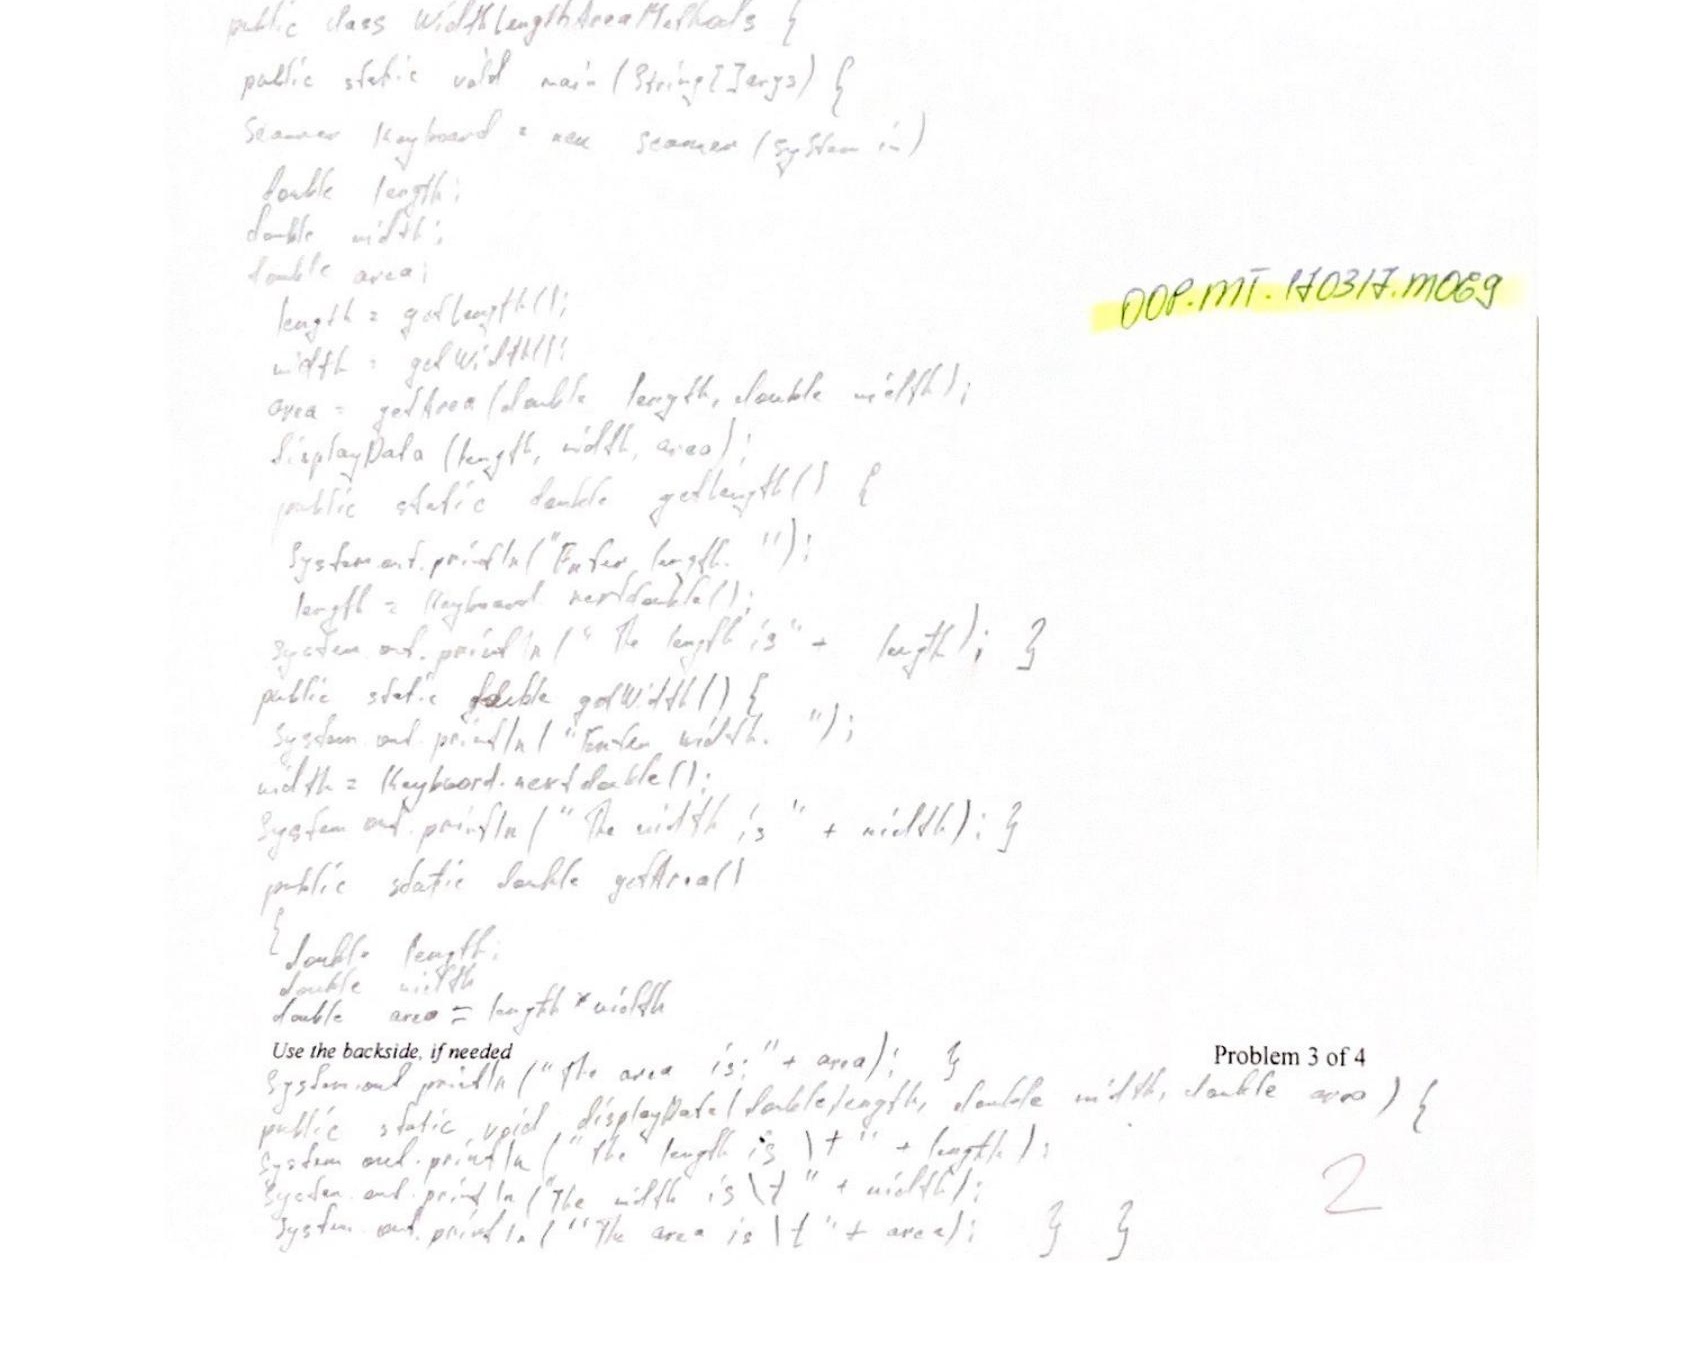 public class WidthLengthAreaMethods {
public static void main (String[]args) {
Scanner Keyboard = new Scanner (System in)
double length;
double width;
double area;
OOP.MT.170317.M069
length = getLength();
width = getWidth();
area = getArea (double length, double width);
displayData (length, width, area);
public static double getLength() {
System.out.println("Enter length. ");
length = Keyboard nextdouble();
System.out.println(" The length is" + length); }
public static double getWidth() {
System.out.println("Enter width. ");
width = Keyboard.nextdouble();
System out.println(" The width is " + width); }
public static double getArea()
{
double length;
double width
double area = length * width
Use the backside, if needed
Problem 3 of 4
System.out println ("The area is: " + area); }
public static void displayData(double length, double width, double area) {
System out.println ("The length is \t" + length);
System.out.println ("The width is \t " + width);
System.out.println ("The area is \t " + area); } }
2